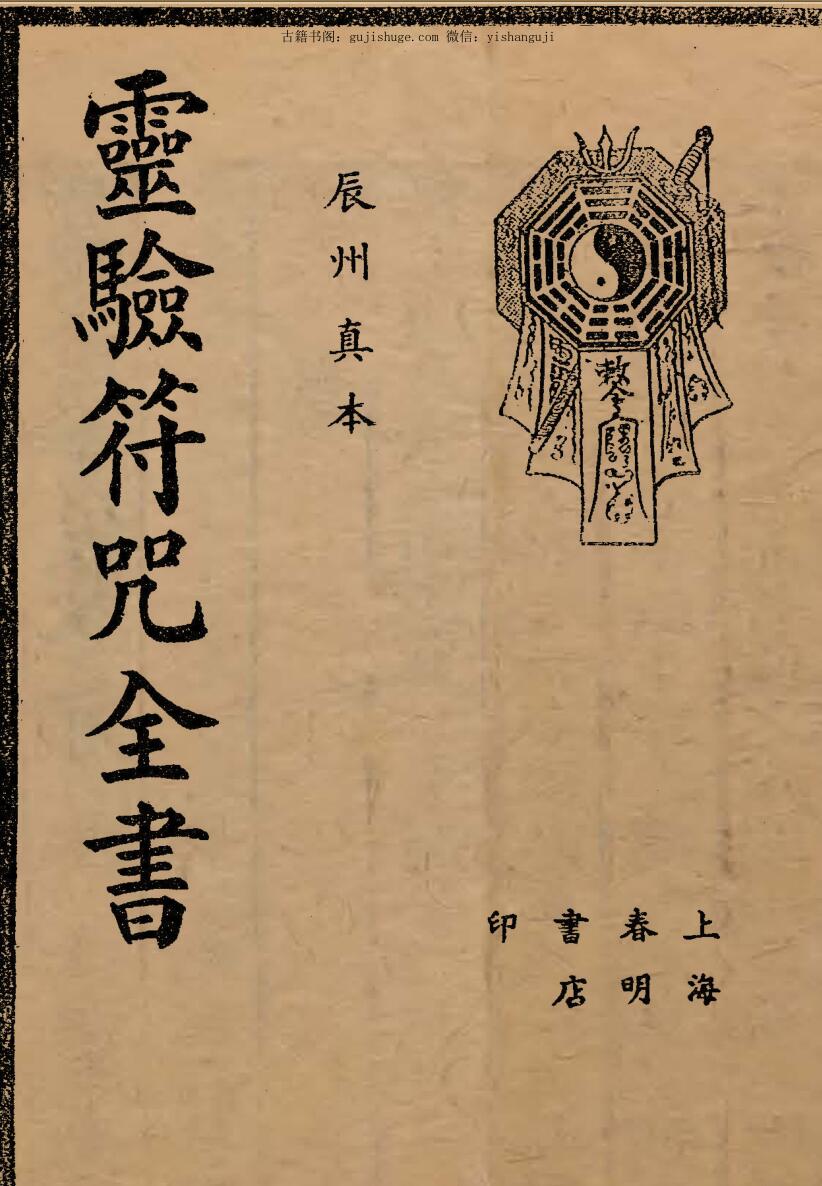 古籍书阁：gujishuge.com 微信：yishanguji
敕令
上海
春明
書店
印
辰州真本
靈驗符咒全書